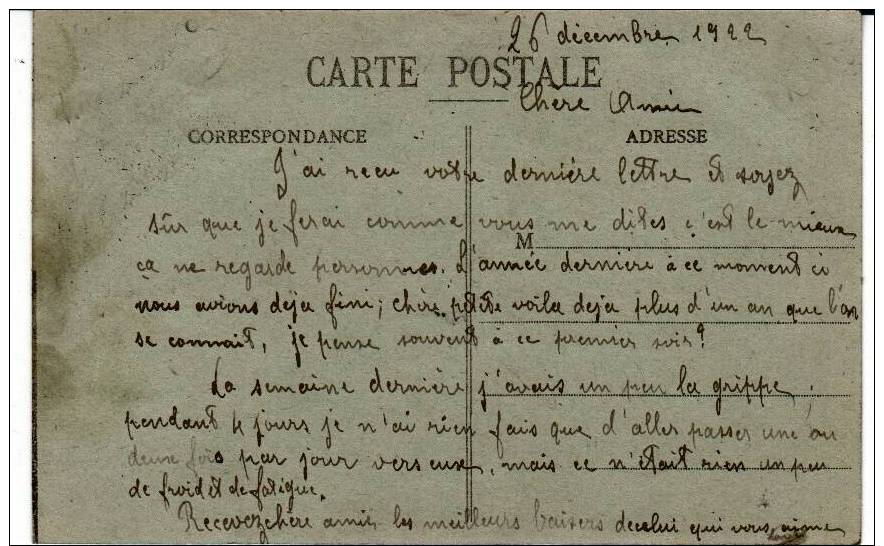 26 décembre 1922
CARTE POSTALE
Chère Amie
CORRESPONDANCE ADRESSE
J'ai recu votre dernière lettre et soyez
sûr que je ferai comme vous me dites c'est le mieux
M
ça ne regarde personnes. L'année dernière à ce moment ci
nous avions déja fini; chère petite voila deja plus d'un an que l'on
se connait, je pense souvent à ce premier soir!
La semaine dernière j'avais un peu la grippe,
pendant 4 jours je n'ai rien fais que d'aller passer une ou
deux fois par jour vers eux, mais ce n'était rien un peu
de froid et de fatigue.
Recevez chère amie, les meilleurs baisers de celui qui vous aime